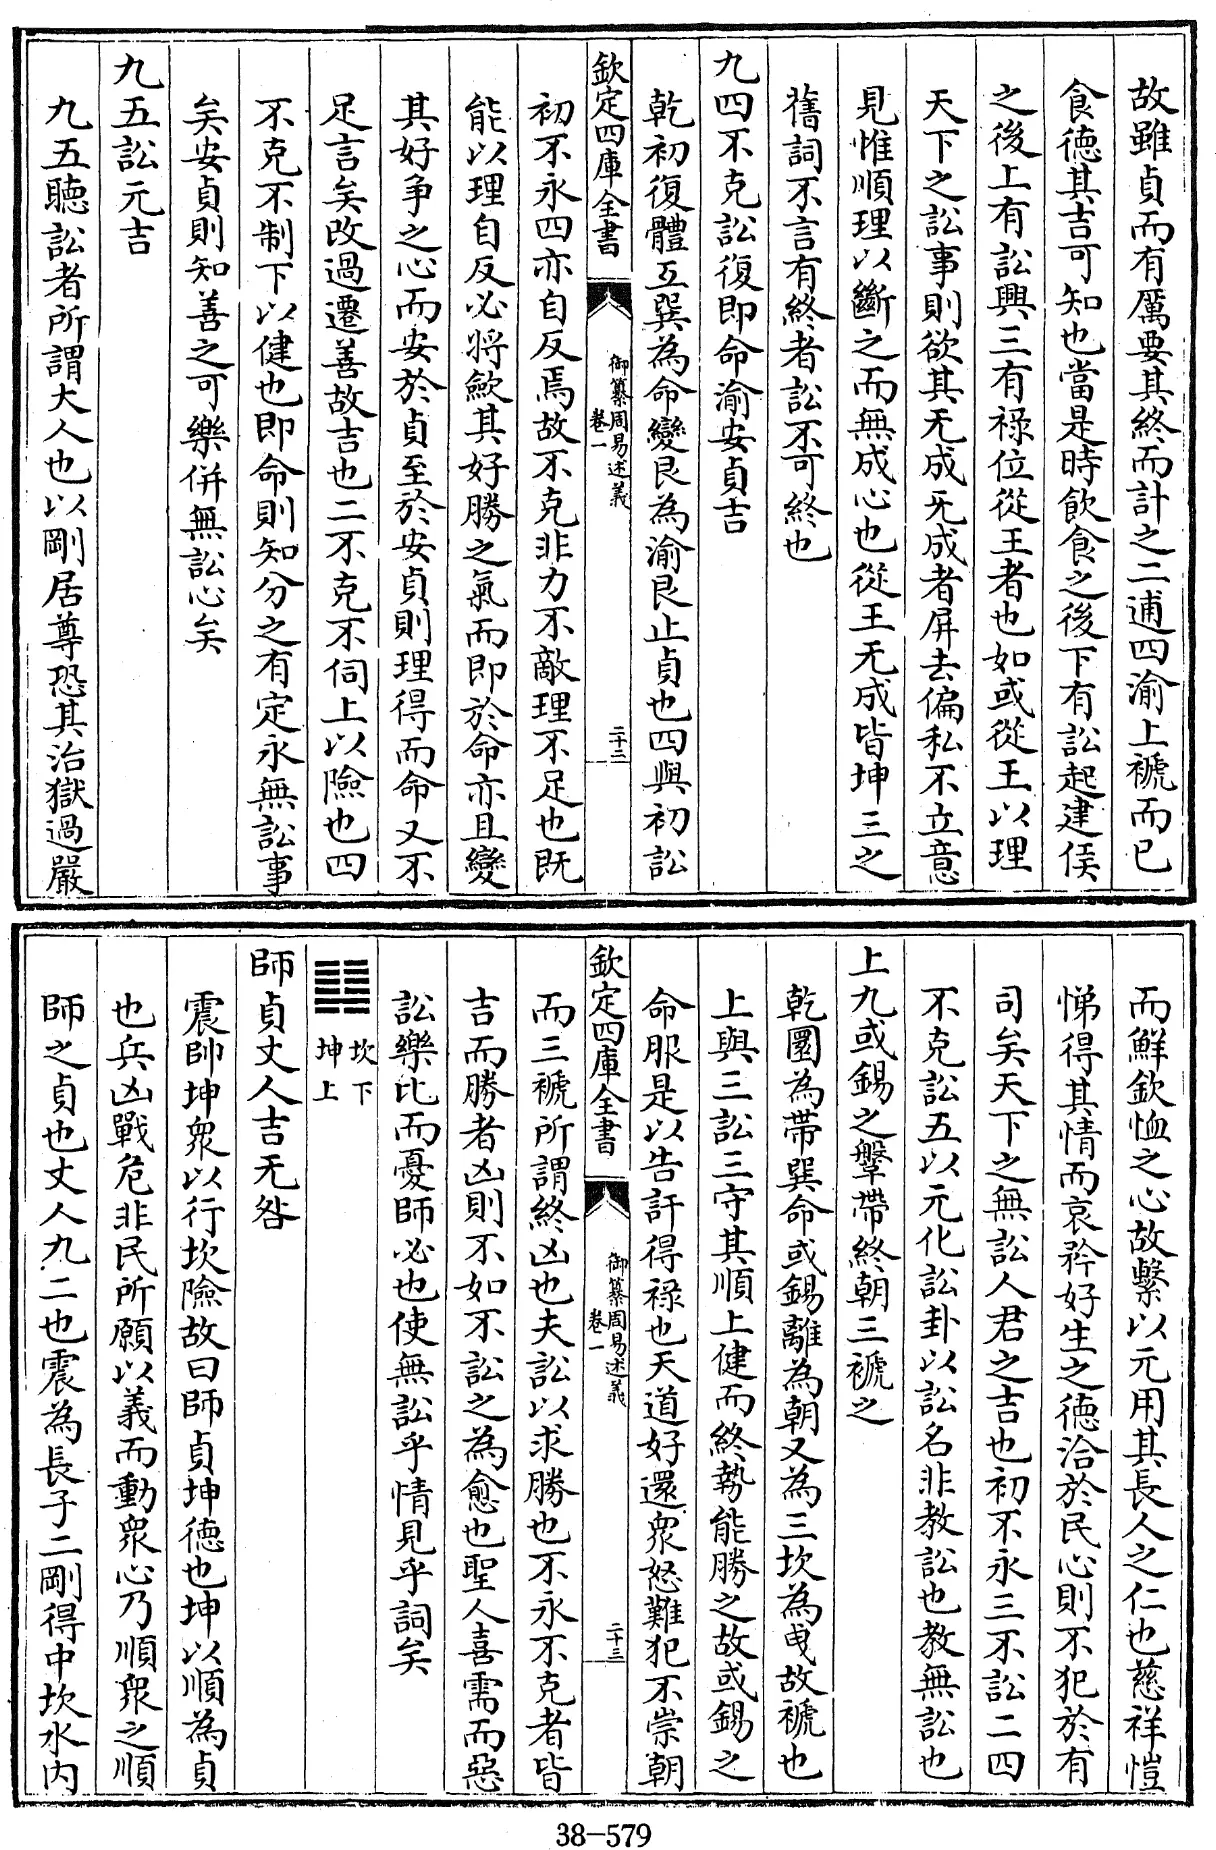 故雖貞而有厲要其終而計之二逋四渝上褫而已
食德其吉可知也當是時飲食之後下有訟起建侯
之後上有訟興三有祿位從王者也如或從王以理
天下之訟事則欲其无成无成者屏去偏私不立意
見惟順理以斷之而無成心也從王无成皆坤三之
舊詞不言有終者訟不可終也
九四不克訟復即命渝安貞吉
乾初復體互巽為命變艮為渝艮止貞也四與初訟
欽定四庫全書
御纂周易述義
卷一
二十二
初不永四亦自反焉故不克非力不敵理不足也既
能以理自反必將斂其好勝之氣而即於命亦且變
其好爭之心而安於貞至於安貞則理得而命又不
足言矣改過遷善故吉也二不克不伺上以險也四
不克不制下以健也即命則知分之有定永無訟事
矣安貞則知善之可樂併無訟心矣
九五訟元吉
九五聽訟者所謂大人也以剛居尊恐其治獄過嚴
而鮮欽恤之心故繫以元用其長人之仁也慈祥愷
悌得其情而哀矜好生之德洽於民心則不犯於有
司矣天下之無訟人君之吉也初不永三不訟二四
不克訟五以元化訟卦以訟名非教訟也教無訟也
上九或錫之鞶帶終朝三褫之
乾圜為帶巽命或錫離為朝又為三坎為曳故褫也
上與三訟三守其順上健而終勢能勝之故或錫之
命服是以告訐得祿也天道好還衆怒難犯不崇朝
欽定四庫全書
御纂周易述義
卷一
二十三
而三褫所謂終凶也夫訟以求勝也不永不克者皆
吉而勝者凶則不如不訟之為愈也聖人喜需而惡
訟樂比而憂師必也使無訟乎情見乎詞矣
䷆坎下
坤上
師貞丈人吉无咎
震帥坤衆以行坎險故曰師貞坤德也坤以順為貞
也兵凶戰危非民所願以義而動衆心乃順衆之順
師之貞也丈人九二也震為長子二剛得中坎水内
38-579